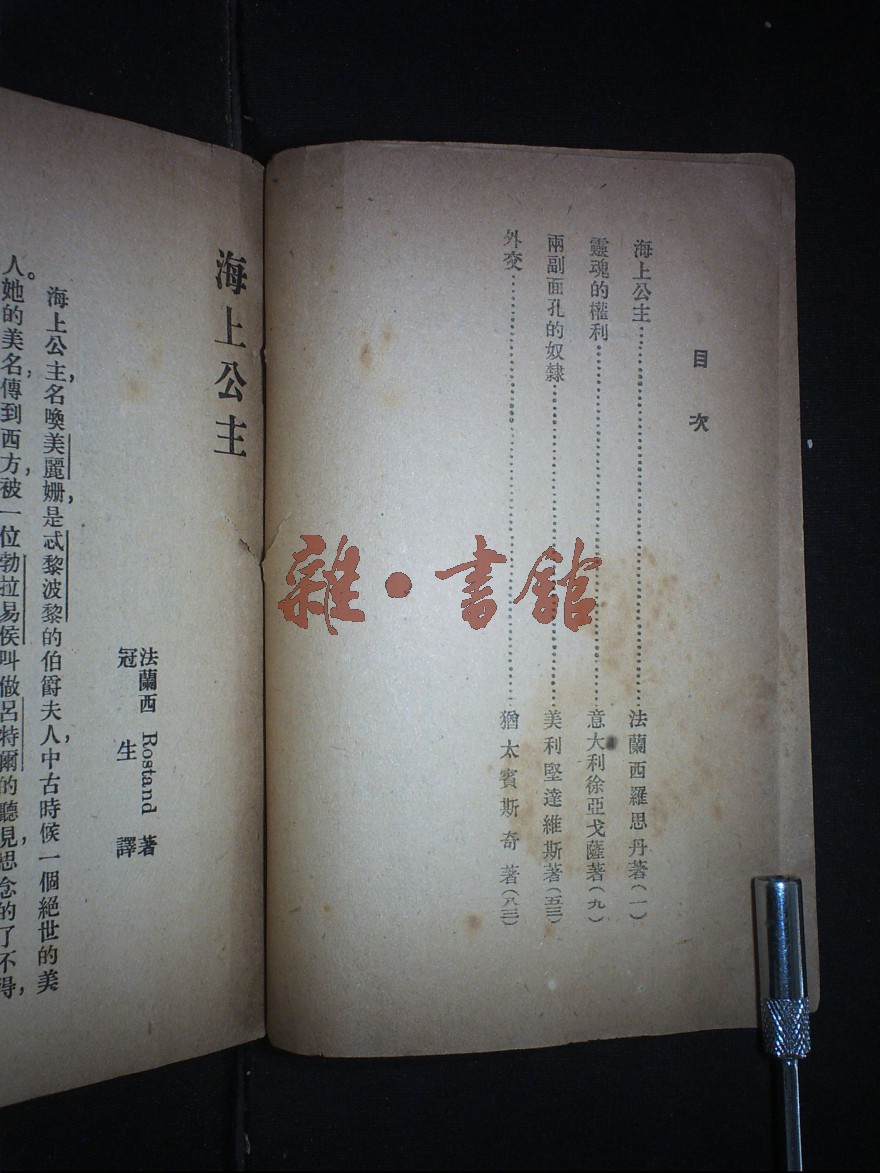 目次
海上公主……法蘭西羅思丹著(一)
靈魂的權利……意大利徐亞戈薩著(九)
兩副面孔的奴隸……美利堅達維斯著(五三)
外交……猶太賓斯奇著(八三)
海上公主
法蘭西 Rostand 著
冠生譯
海上公主,名喚美麗姍,是忒黎波黎的伯爵夫人,中古時候一個絕世的美
人。她的美名,傳到西方,被一位勃拉易侯叫做呂特爾的聽見,思念的了不得,
雜·書館